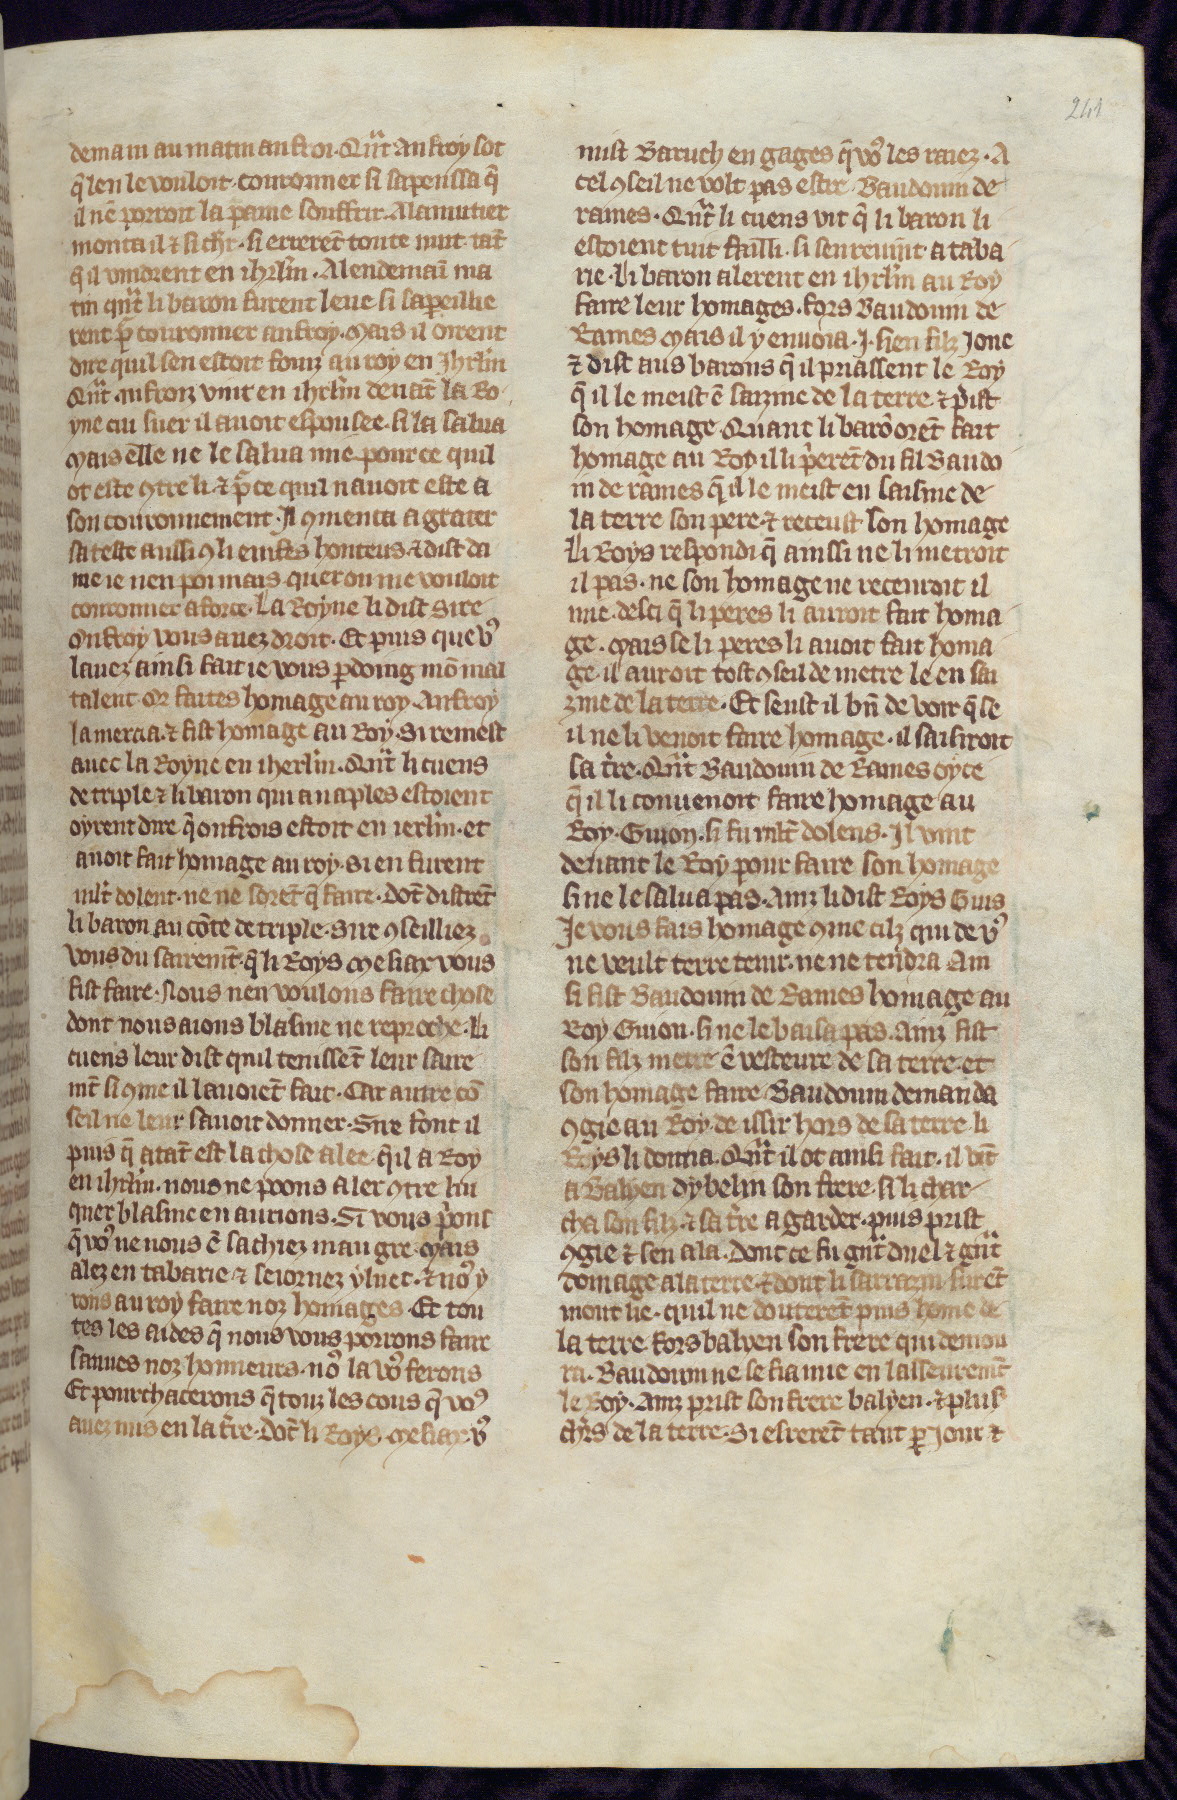 241
demain au matin anfroi. Qu̅t anfroy sot
q̅ len le vouloit couronner si sapenssa q̅
il ne̅ porroit la paine souffrir. A la mutier
monta il ⁊ si ch̅r. si errere̅t toute nuit ta̅t
q̅ il vindrent en ih̅rl̅m. A lendemai̅ ma
tin qu̅t li baron furent leue si sapeillie
rent p̅ couronner anfroy. Mais il oirent
dire quil sen estoit fouiz au roy en Ih̅rl̅m
Qu̅t anfroiz vint en ih̅rl̅m deua̅t la Ro
yne cui suer il auoit espousee. si la salua
Mais elle ne le salua mie pource quil
ot este ꝯtre li. ⁊ p̅ ce quil nauoit este a
son couronnement. Il ꝯmenca a grater
sa teste aussi ꝯ li emfes honteus. ⁊ dist da
me ie nen poi mais. quer on me vouloit
couronner a force. La Royne li dist sire
Onfroy vous auez droit. Et puis que v᷒
lauez ainsi fait ie vous p̱doing mo̅ mal
talent. or faites homage au roy. Anfroy
la mercia. ⁊ fist homage au Roy. Si remest
auec la Royne en iherl̅m. Qu̅t li cuens
de triple ⁊ li baron qui a naples estoient
oyrent dire q̅ onfrois estoit en ierl̅m. et
auoit fait homage au roy. si en furent
ml̅t dolent. ne ne sore̅t q̅ faire. Do̅t distre̅t
li baron au co̅te de triple. Sire ꝯseilliez
vous du saireme̅t. q̅ li Roys Mesiax vous
fist faire. Nous nen voulons faire chose
dont nous aions blasme ne reproche. Li
cuens leur dist quil tenisse̅t leur saire
me̅t si ꝯme il lauoie̅t fait. Car autre co̅
seil ne leur sauoit donner. Sire font il
puis q̅ ata̅t est la chose alee. q̅ il a Roy
en ih̅rl̅m. nous ne poons aler ꝯtre lui
quer blasme en aurions. Si vous p̅ons
q̅ vo᷒ ne nous e̅ sachiez maugre. Mais
alez en tabarie ⁊ seiornez yluec. ⁊ no᷒ y
rons au roy faire noz homages. Et tou
tes les aides q̅ nous vous porrons faire
sauues noz honneurs. no᷒ la vo᷒ ferons
Et pourchacerons q̅ touz les cous q̅ vo᷒
auez mis en la t̅re. Do̅t li Roys Mesiax v᷒
mist Baruch en gages q̅ vo᷒ les raiez. A
cel ꝯseil ne volt pas estre. Baudouin de
rames. Qu̅t li cuens vit q̅ li baron li
estoient tuit failli. si sen reuint a taba
rie. Li baron alerent en ih̅rl̅m au Roy
faire leur homages. fors Baudouin de
Rames Mais il y enuoia .I. sien filz Jone
⁊ dist aus barons q̅ il priassent le Roy
q̅ il le meist e̅ saizme de la terre. ⁊ p̅ist
son homage. Quant li baro̅ ore̅t fait
homage au Roy il li p̅iere̅t du fil Baudo
in de rames q̅ il le meist en saisine de
la terre son pere. ⁊ receust son homage
Li Roys respondi q̅ ainssi ne li metroit
il pas. ne son homage ne receuroit il
mie. desci q̅ li peres li auroit fait homa
ge. Mais se li peres li auoit fait homa
ge. il auroit tost ꝯseil de metre le en sai
zine de la terre. Et seust il bn̅ de voir q̅ se
il ne li venoit faire homage. il saisiroit
sa t̅re. Qu̅t Baudouin de Rames oy ce
q̅ il li conuenoit faire homage au
Roy. Guion. si fu ml̅t dolens. Il vint
deuant le Roy pour faire son homage
si ne le salua pas. Ainz li dist Roys Guis
Je vous fais homage ꝯme cilz qui de v᷒
ne veult terre tenir. ne ne tendra Ain
si fist Baudouin de Rames homage au
Roy Guion. si ne le baisa pas. Ainz fist
son filz metre e̅ vesteure de sa terre. et
son homage faire. Baudouin demanda
ꝯgie au Roy. de issir hors de sa terre. li
Roys li donna. Qu̅t il ot ainsi fait. il vi̅t
a Balyen dybelin son frere. si li char
cha son filz. ⁊ sa t̅re a garder. puis prist
ꝯgie ⁊ sen ala. Dont ce fu gn̅t duel ⁊ gn̅t
domage a la terre. ⁊ dont li sarrazin fure̅t
mout lie. quil ne doutere̅t puis home de
la terre fors balyen son frere qui demou
ra. Baudouin ne se fia mie en lasseureme̅t
le Roy. Ainz prist son frere balyen. ⁊ plus᷒
ch̅rs de la terre. Si esrere̅t tant p̱ iour ⁊